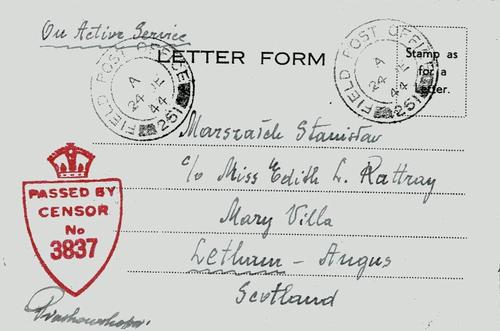 On Active Service
LETTER FORM
Stamp as
for a
Letter.
FIELD POST OFFICE
A
24 JE
44
251
FIELD POST OFFICE
A
24 JE
44
251
Stanislav
c/o Miss Edith L. Rattray
Mary Villa
Letham - Angus
Scotland
PASSED BY
CENSOR
No
3837